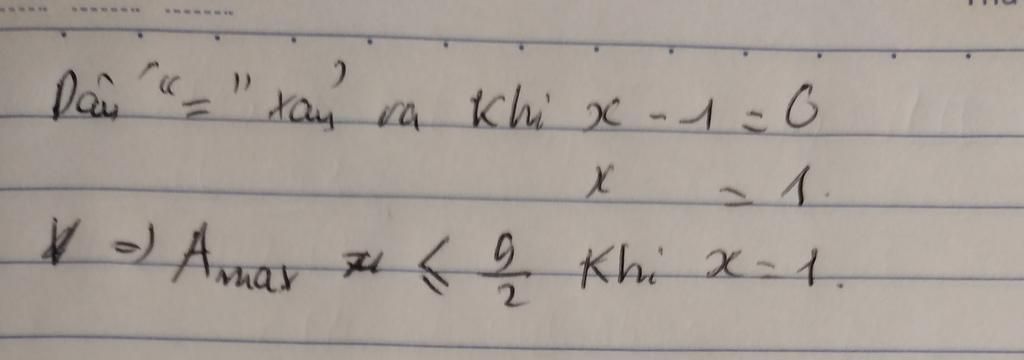 Dấu "=" xảy ra khi x - 1 = 0
x = 1.
=) Amax ≤ 9/2 khi x = 1.